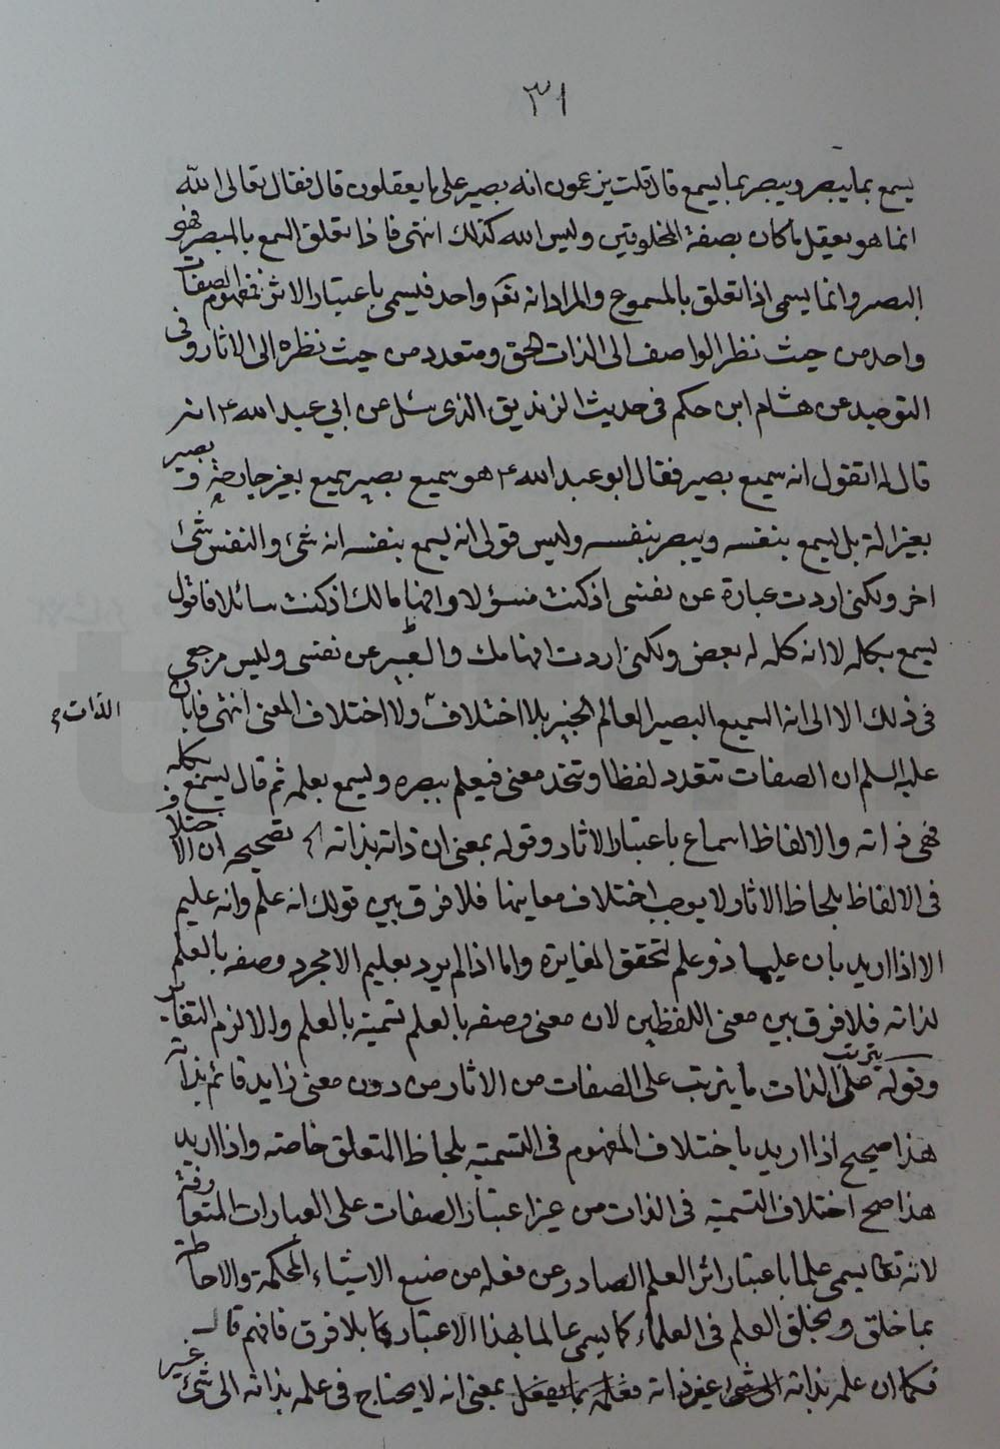 ٣١
يسمع بما يبصر ويبصر بما يسمع قال قلت يزعمون انه بصير على ما يعقلون قال فقال تعالى الله
انما هو يعقل ما كان بصفة المخلوقين وليس الله كذلك انتهى فاذا تعلق السمع بالمبصر فهو
البصر وانما يسمى اذا تعلق بالمسموع والمراد انه واحد فيسمى باعتبار الاثر فمفهوم الصفات
واحد من حيث نظر الواصف الى الذات الحق ومتعدد من حيث نظره الى الاثار وفى
التوحيد عن هشام ابن حكم فى حديث الزنديق الذى سئل عن ابي عبد الله ع انه
قال له اتقول انه سميع بصير فقال ابو عبد الله ع هو سميع بصير سميع بغير جارحة و بصير
بغير الة بل يسمع بنفسه ويبصر بنفسه وليس قولى انه يسمع بنفسه انه شئ والنفس شئ
اخر ولكنى اردت عبارة عن نفسى اذ كنت مسؤلا وافهاما لك اذ كنت سائلا فاقول
يسمع بكله لا انه كله له بعض ولكنى اردت افهامك والتعبير عن نفسى وليس مرجعى
فى ذلك الا الى انه السميع البصير العالم الخبير بلا اختلاف ولا اختلاف المعنى انتهى فابان
الذات
عليه السلم ان الصفات تتعدد لفظا وتتحد معنى فيعلم ببصره ويسمع بعلمه ثم قال يسمع بكله
فهى ذاته والالفاظ اسماء باعتبار الاثار وقوله بمعنى ان ذاته بذاته الخ تصحيحه ان الاختلاف
فى الالفاظ بلحاظ الاثار لا يوجب اختلاف معاينها فلا فرق بين قولك انه علم وانه عليم
الا اذا اريد بان عليما ذو علم لتحقق المغايرة واما اذا لم يرد بعليم الا مجرد وصفه بالعلم
لذاته فلا فرق بين معنى اللفظين لان معنى وصفه بالعلم تسميته بالعلم والا لزم التغاير
وقوله يترتب على الذات ما يترتب على الصفات من الاثار من دون معنى زايد قائم بذاته
هذا صحيح اذا اريد باختلاف المفهوم فى التسمية بلحاظ المتعلق خاصة واذا اريد
هذا صح اختلاف التسمية فى الذات من غير اعتبار الصفات على العبارات المتعارفة
لانه تعالى يسمى علما باعتبار اثر العلم الصادر عن فعله من صنع الاشياء المحكمة والاحاطة
بما خلق وبخلق العلم فى العلماء كما يسمى عالما بهذا الاعتبار بلا فرق فافهم قال
فكما ان علمه بذاته غير ذاته بمعنى انه لا يحتاج فى علمه بذاته الى شئ غير